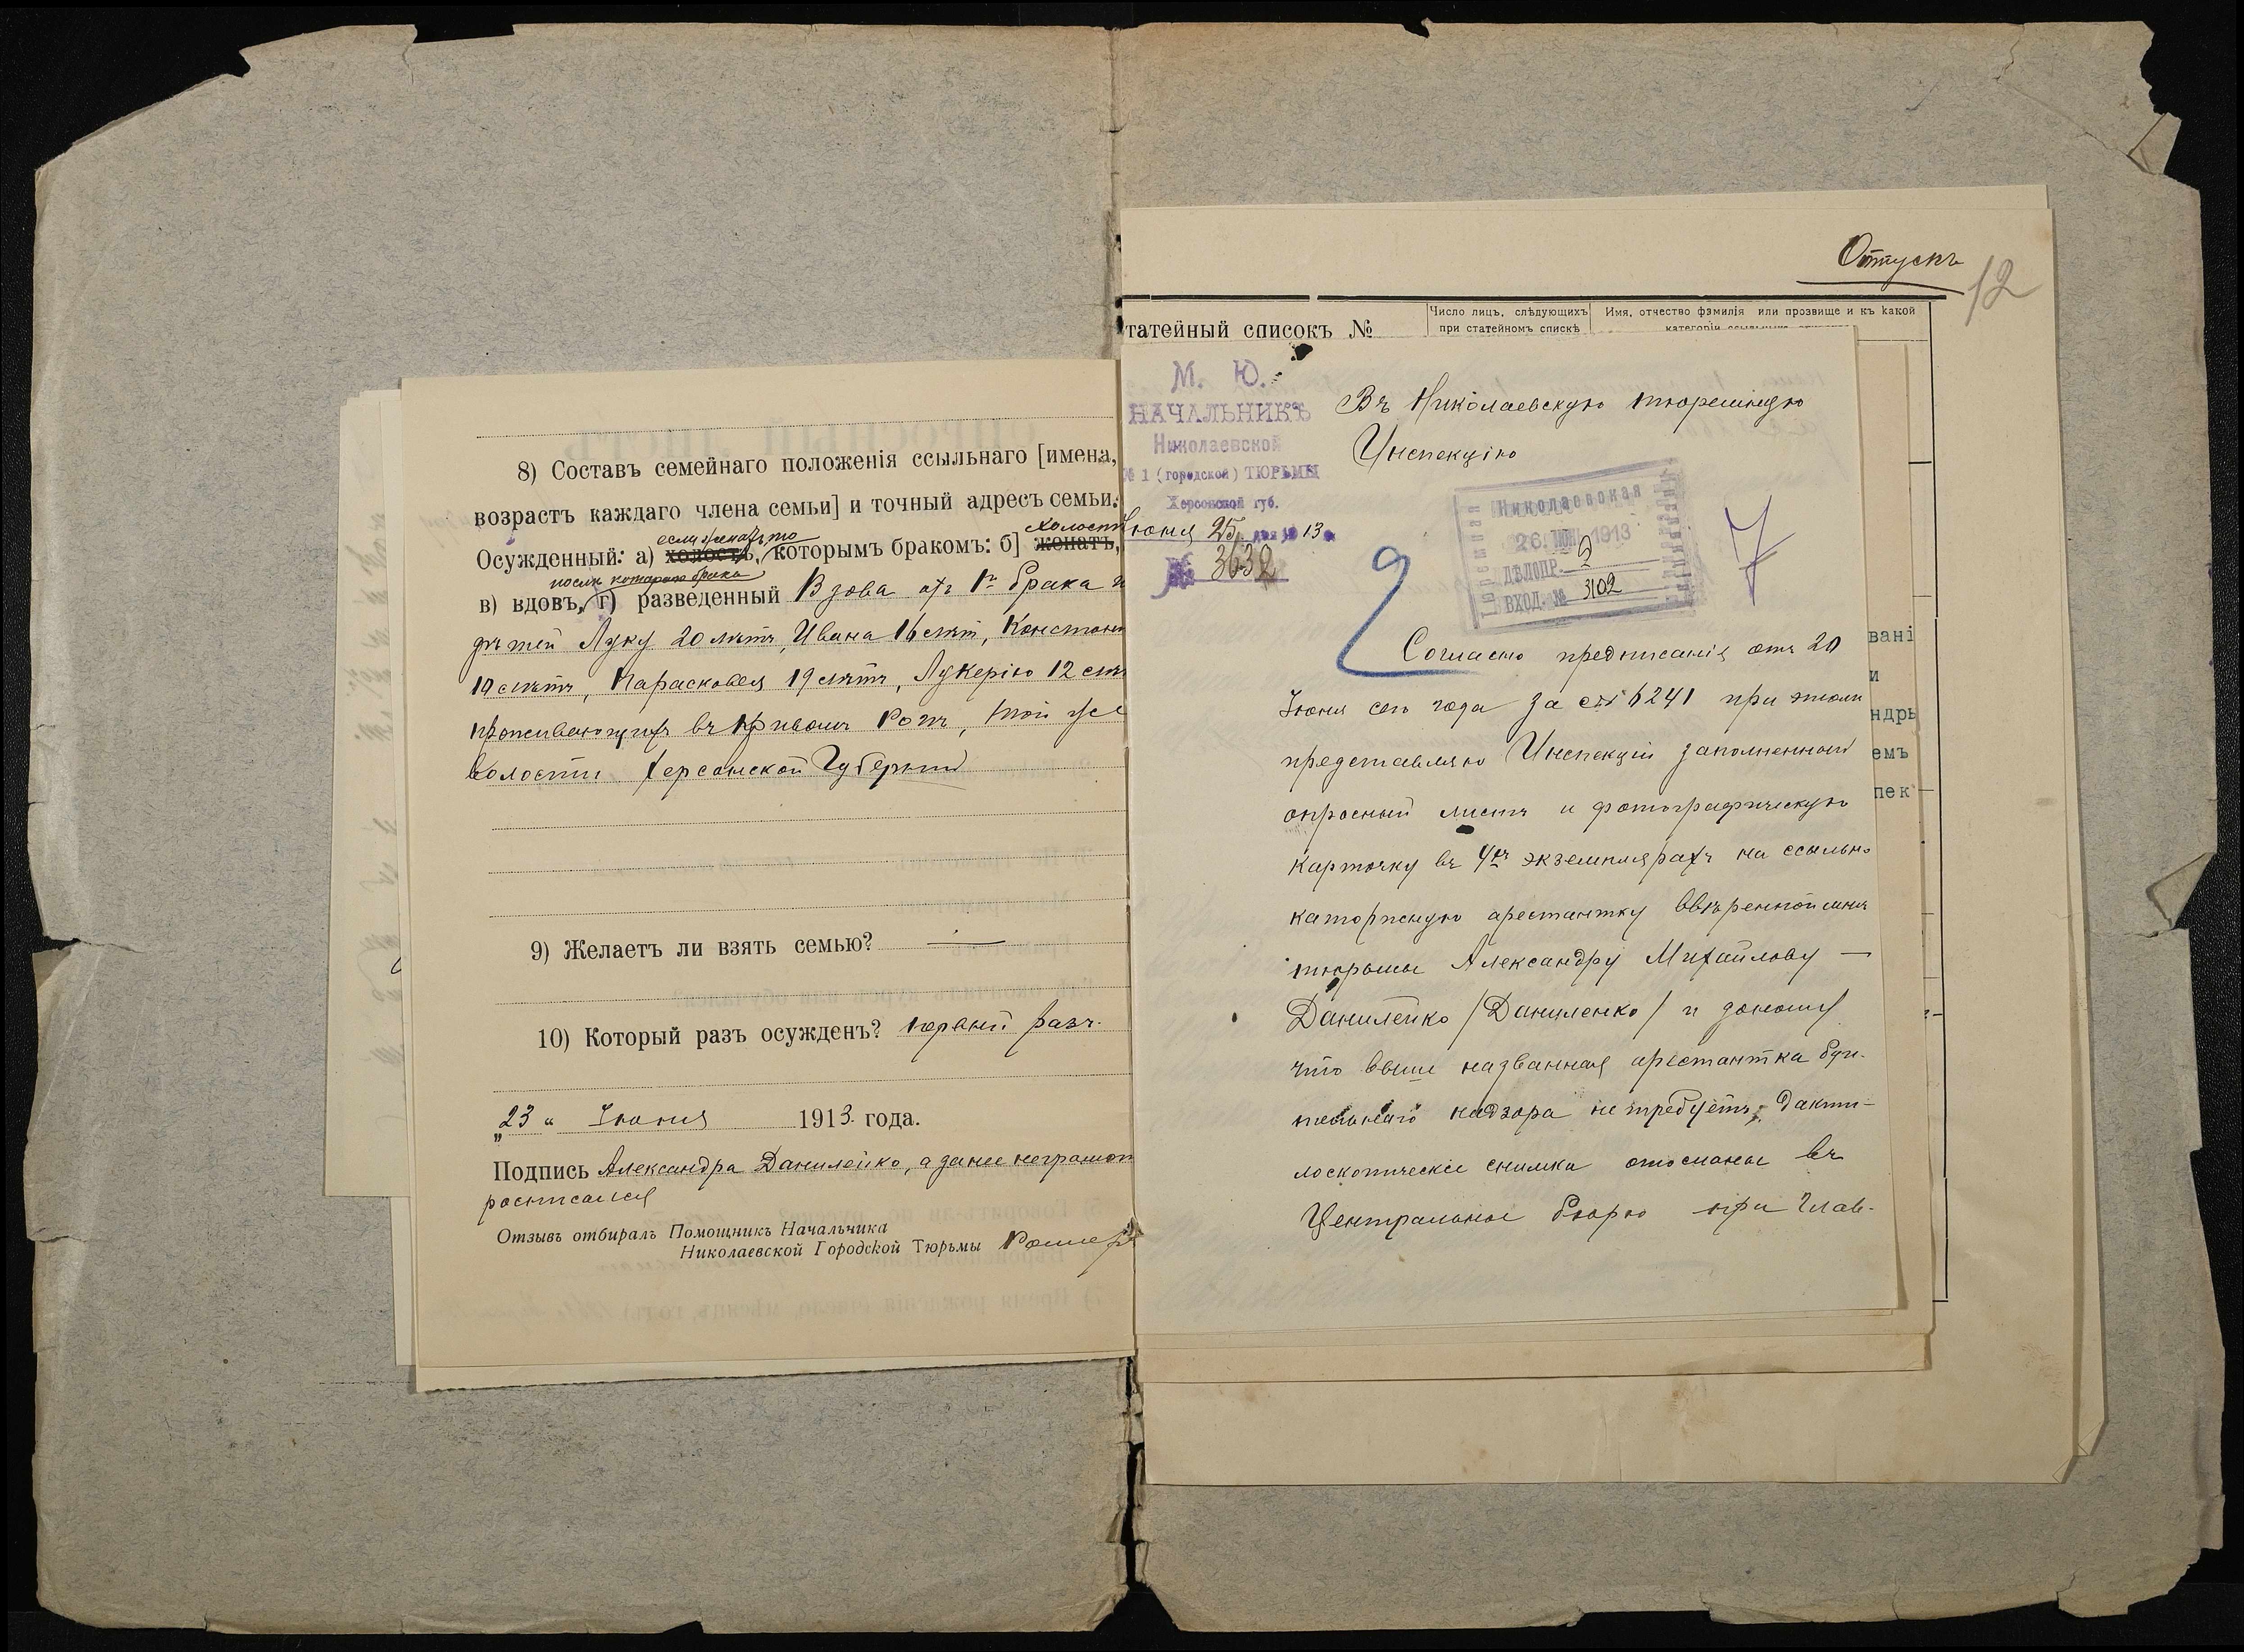 8) Составъ семейнаго положенія ссыльнаго [имена,
возрастъ каждаго члена семьи] и точный адресъ семьи.
если женатъ то
холостъ
Осужденный: а) холостъ, которымъ бракомъ: б] женатъ,
послѣ котораго брака
в) вдовъ, г) разведенный Вдова отъ 1го брака
дѣтей Луку 20 лѣтъ, Ивана 16 лѣтъ,
лѣтъ, Парасковея 19 лѣтъ, Лукерію 12
проживающихъ въ Кривомъ Рогѣ, той же
волости Херсонской Губерніи
9) Желаетъ ли взять семью? —
10) Который разъ осужденъ? первый разъ.
„23 “ Іюня 1913 года.
Подпись Александра Данилейко, а далее неграмот
росписался
Отзывъ отбиралъ Помощникъ Начальника
Николаевской Городской Тюрьмы
Отпускъ
12
татейный списокъ №
Число лицъ, слѣдующихъ при статейномъ спискѣ
Имя, отчество фэмилія или прозвище и къ какой
М. Ю.
НАЧАЛЬНИКЪ
Николаевской
№ 1 (городской) ТЮРЬМЫ
Херсонской губ.
Іюня 25 дня 1913
№ 3632
Въ Николаевскую тюремную
Инспекцію
Николаевская
Тюремная
26 ІЮН 1913
ДѢЛОПР. 2
ВХОД. № 3102
7
Согласно предписанія отъ 20
Іюня сего года за № 6241 при этомъ
представляю Инспекціи заполненный
опросный листъ и фотографическую
карточку въ 4хъ экземплярахъ на ссыльно
каторжную арестантку ввѣренной мнѣ
тюрьмы Александру Михайлову —
Данилейко /Даниленко/ и доношу
что выше названная арестантка бди-
тельнаго надзора не требуетъ, дакти-
лоскопическіе снимки отосланы въ
Центральное бюро при Глав-
вані
и
ндрь
емъ
пек